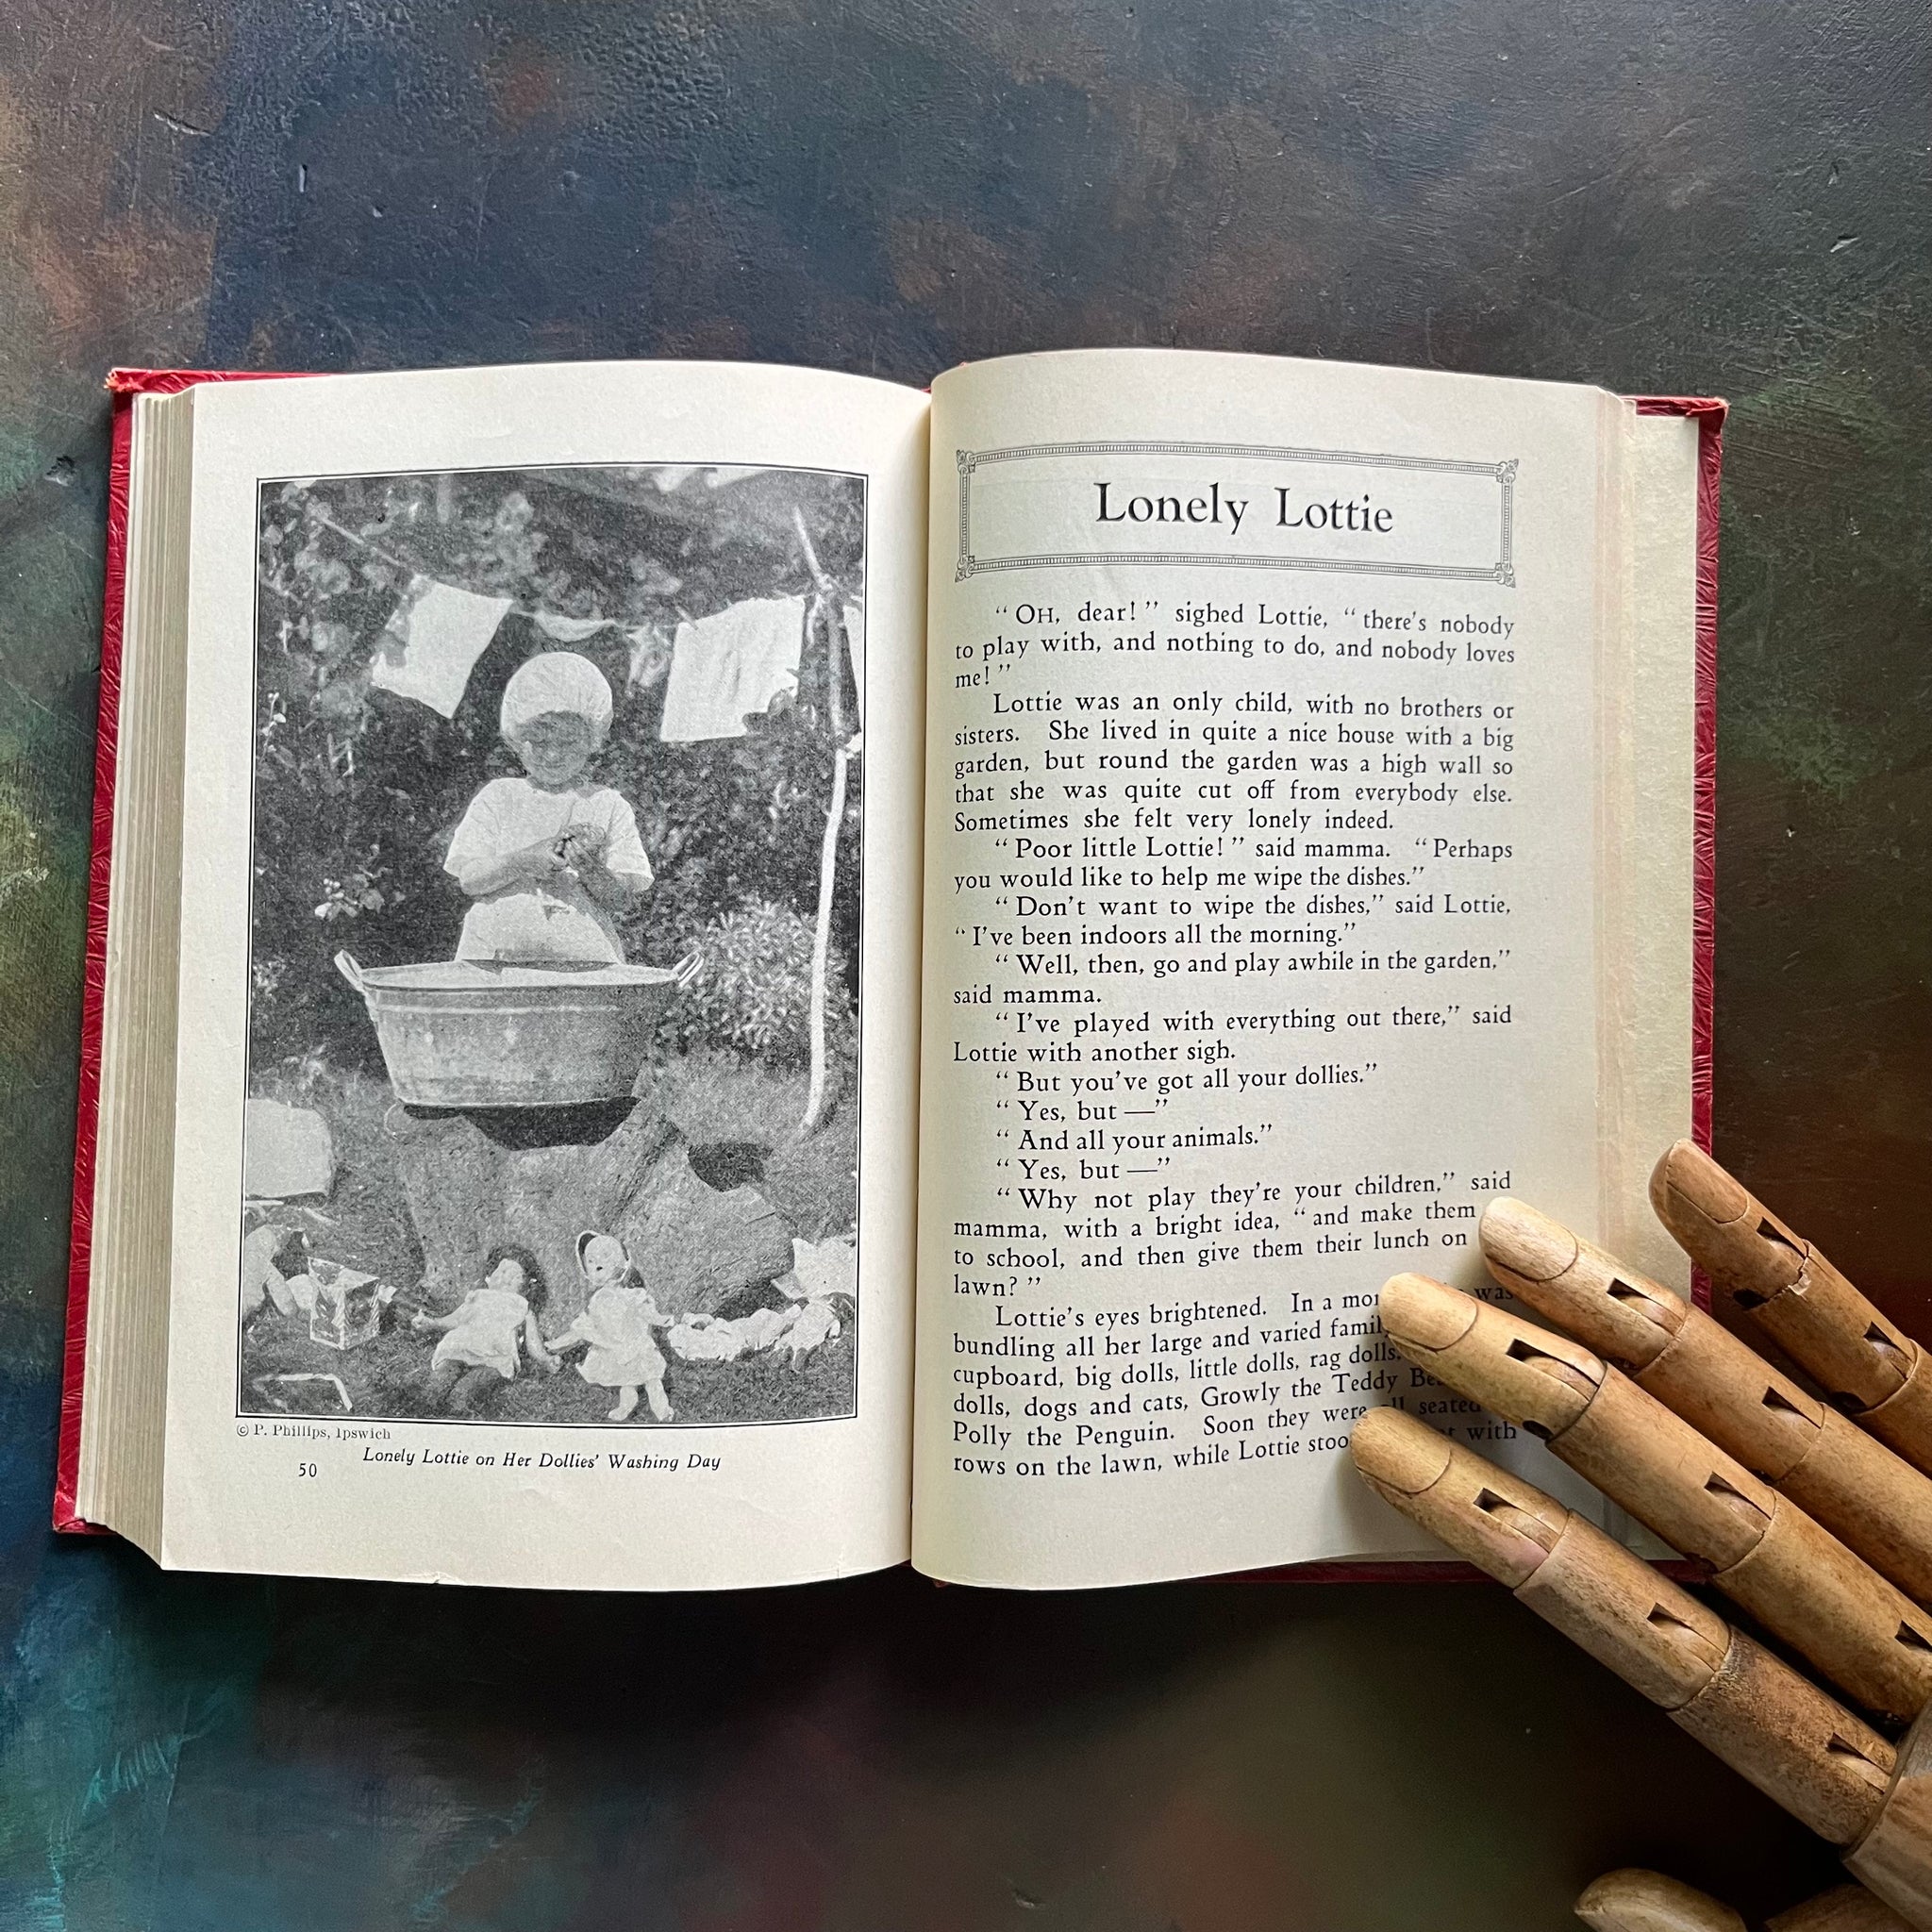 © P. Phillips, Ipswich
Lonely Lottie on Her Dollies' Washing Day
50
Lonely Lottie
“ OH, dear! ” sighed Lottie, “ there's nobody
to play with, and nothing to do, and nobody loves
me! ”
Lottie was an only child, with no brothers or
sisters. She lived in quite a nice house with a big
garden, but round the garden was a high wall so
that she was quite cut off from everybody else.
Sometimes she felt very lonely indeed.
“ Poor little Lottie! ” said mamma. “ Perhaps
you would like to help me wipe the dishes.”
“ Don't want to wipe the dishes,” said Lottie,
“ I've been indoors all the morning.”
“ Well, then, go and play awhile in the garden,”
said mamma.
“ I've played with everything out there,” said
Lottie with another sigh.
“ But you've got all your dollies.”
“ Yes, but —”
“ And all your animals.”
“ Yes, but —”
“ Why not play they're your children,” said
mamma, with a bright idea, “ and make them
to school, and then give them their lunch on
lawn? ”
Lottie's eyes brightened. In a was
bundling all her large and varied
cupboard, big dolls, little dolls, rag dolls,
dolls, dogs and cats, Growly the Teddy
Polly the Penguin. Soon they were all seated
rows on the lawn, while Lottie with